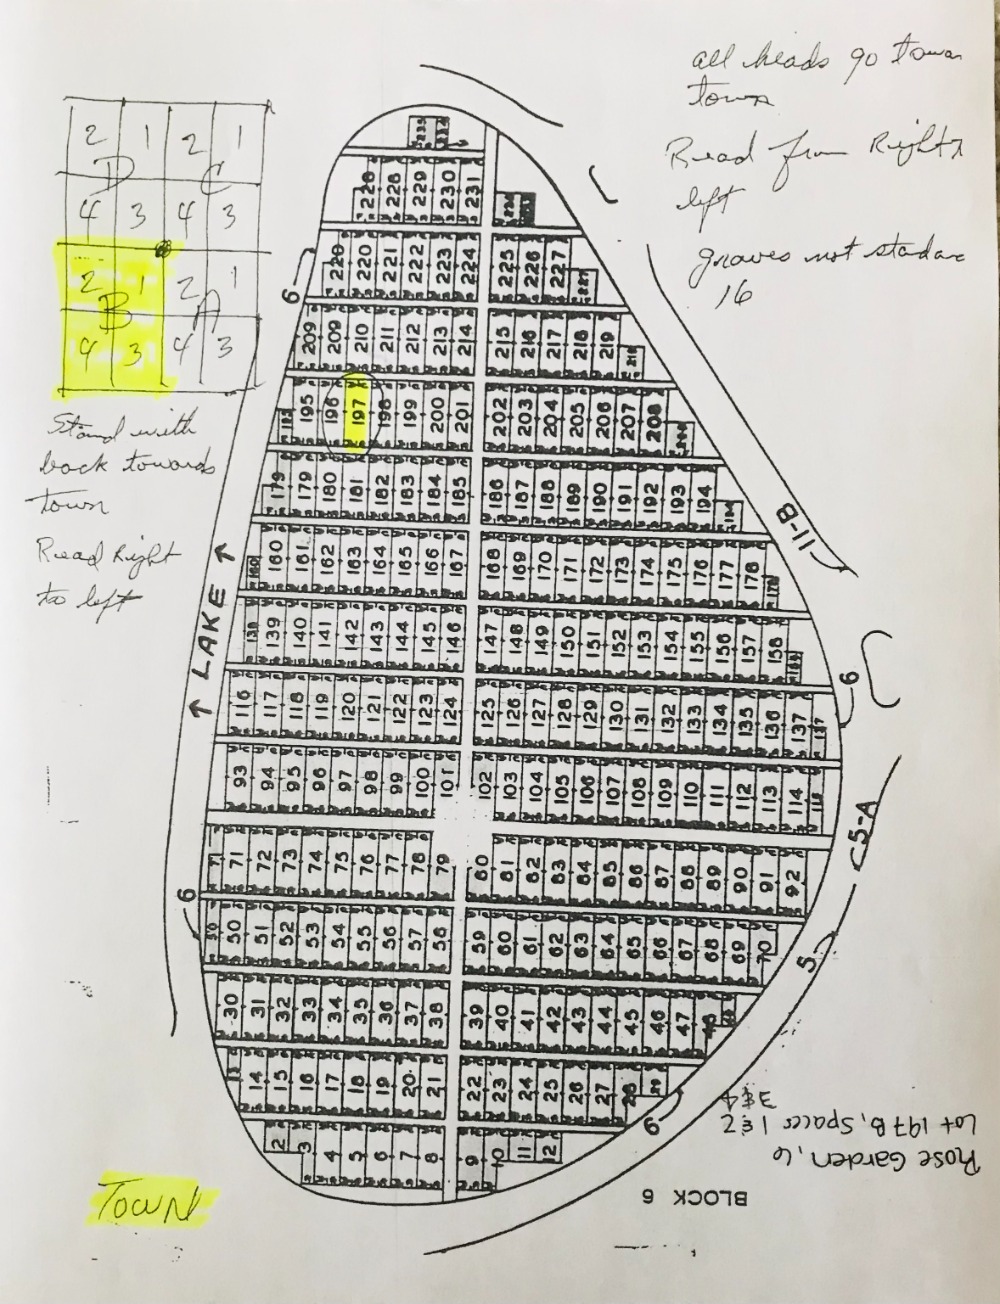 all heads go towar
town
Read from Right
left
graves not standar
16
2 1 2 1
D C
4 3 4 3
2 1 2 1
B A
4 3 4 3
Stand with
back towards
town
Read Right
to left
↑ LAKE ↑
6
11-B
6
5-A
6
5
6
235 234
226 228 229 230 231
220 220 221 222 223 224 225 226 227 227
209 209 210 211 212 213 214 215 216 217 218 219 219
195 195 196 197 198 199 200 201 202 203 204 205 206 207 208
179 179 180 181 182 183 184 185 186 187 188 189 190 191 192 193 194 194
160 160 161 162 163 164 165 166 167 168 169 170 171 172 173 174 175 176 177 178 178
139 139 140 141 142 143 144 145 146 147 148 149 150 151 152 153 154 155 156 157 158
116 117 118 119 120 121 122 123 124 125 126 127 128 129 130 131 132 133 134 135 136 137 137
93 94 95 96 97 98 99 100 101 102 103 104 105 106 107 108 109 110 111 112 113 114
71 71 72 73 74 75 76 77 78 79 80 81 82 83 84 85 86 87 88 89 90 91 92
50 50 51 52 53 54 55 56 57 58 59 60 61 62 63 64 65 66 67 68 69 70
30 31 32 33 34 35 36 37 38 39 40 41 42 43 44 45 46 47 48
14 15 16 17 18 19 20 21 22 23 24 25 26 27 28 29
2 3 4 5 6 7 8 9 10 11 12
Rose Garden, 6
Lot 197 B, Spaces 1 & 2
3 & 4
BLOCK 6
TOWN